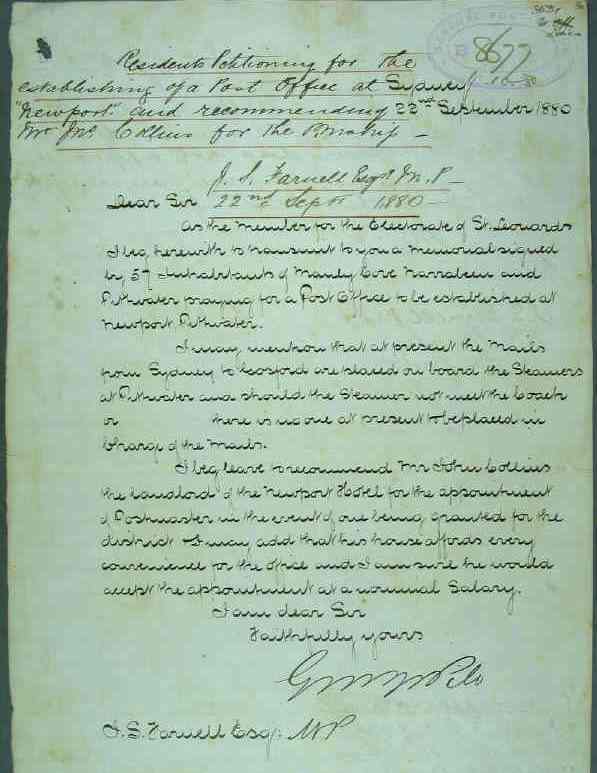 GENERAL POST
B 8677
Residents Petitioning for the
establishing of a Post Office at Sydney
"Newport" and recommending 22nd September 1880
Mr Jno Collins for the P.mship —
J. S. Farnell Esqr M.P —
Dear Sir 22nd Sept 1880 —
As the Member for the Electorate of St. Leonards
I beg herewith to transmit to you a memorial signed
by 57 Inhabitants of Manly Cove Narrabeen and
Pittwater praying for a Post Office to be established at
Newport Pittwater.
I may mention that at present the Mails
from Sydney to Gosford are placed on board the Steamers
at Pittwater and should the Steamer not meet the Coach
or there is no one at present to be placed in
charge of the Mails.
I beg leave to recommend Mr John Collins
the Landlord of the Newport Hotel for the appointment
of Postmaster in the event of one being granted for the
district I may add that his house affords every
convenience for the office and I am sure he would
accept the appointment at a nominal Salary.
I am dear Sir
Faithfully yours
J. S. Farnell Esq: MP